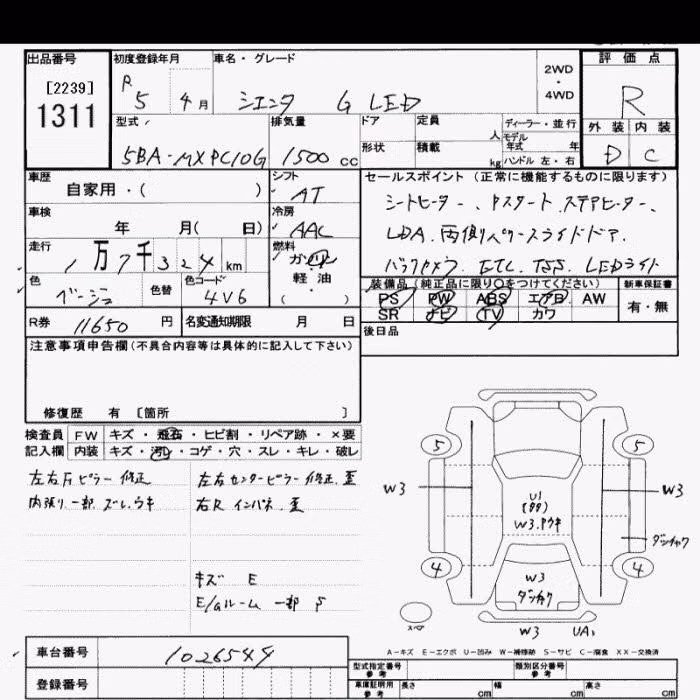 出品番号 初度登録年月 車名・グレード 2WD・4WD 評価点
[2239] R 5 4月 シエンタ G LED R
1311 型式 排気量 ドア 定員 人 ディーラー・並行 外装 内装
5BA-MXPC10G 1500 cc 形状 積載 kg モデル年式 年 ハンドル 左・右 D C
車歴 シフト セールスポイント(正常に機能するものに限ります)
自家用・( ) AT シートヒーター、ヤスタート.ステアヒーター、
車検 冷房 LDA.両側パワースライドドア.
年 月( 日) AAC バックカメラ.ETC.TSS.LEDライト
走行 1万7千324km 燃料 ガソリン 軽油 ( ・ )
色 ベージュ 色替 色コード 4V6
装備品(純正品に限り○をつけてください) 新車保証書
PS PW ABS エアB AW 有・無
SR ナビ TV カワ
R券 11650 円 名変通知期限 月 日 後日品
注意事項申告欄(不具合内容等は具体的に記入して下さい)
修復歴 有 [箇所 ]
検査員 FW キズ・飛石・ヒビ割・リペア跡・×要
記入欄 内装 キズ・汚れ・コゲ・穴・スレ・キレ・破レ
左右Fピラー 修正 左右センターピラー 修正.歪
内張り一部 ズレ.ウキ 右R インパネ.歪
キズ E
E/Gルーム 一部 S
5 5
W3 W3
U1
(99)
W3.ウキ
ダンチャク
4 4
W3
ダンチャク
スペア
W3 UA1
A-キズ E-エクボ U-凹み W-補修跡 S-サビ C-腐食 XX-交換済
車台番号 1026549
登録番号
型式指定番号 参考 類別区分番号 参考
車庫証明用 参考 長さ cm 幅 cm 高さ cm